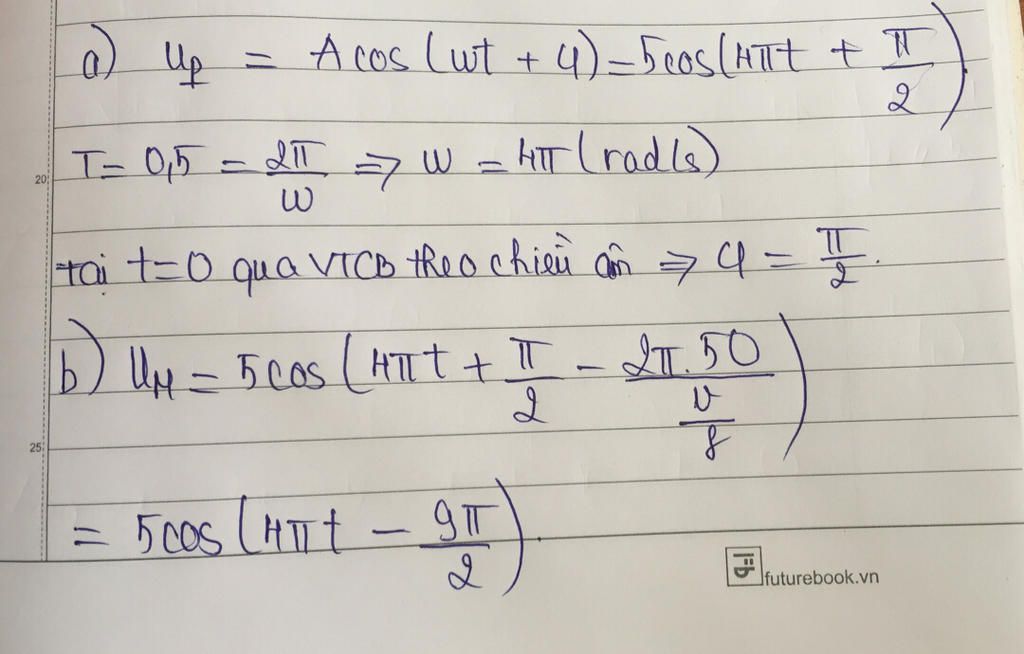 a) u_P = Acos(ωt + φ) = 5cos(4πt + π/2)
20
T = 0,5 = 2π/ω ⇒ ω = 4π (rad/s)
tại t=0 qua VTCB theo chiều âm ⇒ φ = π/2.
b) u_M = 5cos(4πt + π/2 - 2π.50/(v/f))
25
= 5cos(4πt - 9π/2).
futurebook.vn